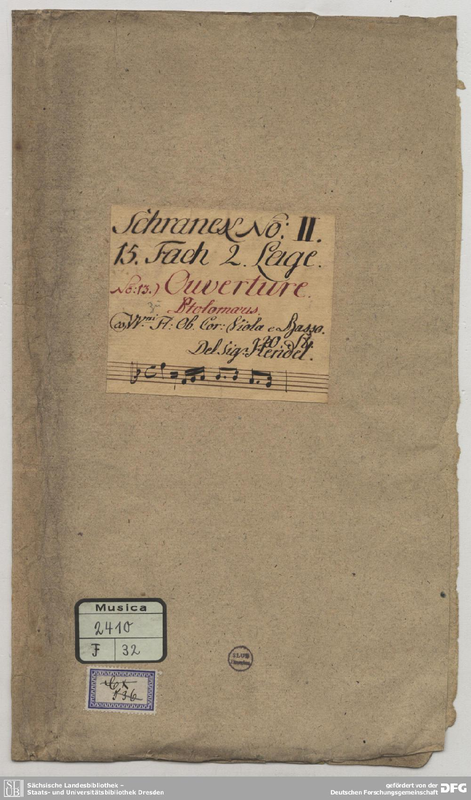 Schranck No: II.
15. Fach 2. Lage.
No: 13.) Ouverture.
Ptolomæus.
VV.ni Fl: Ob: Cor: Viola e Basso.
20 St.
Del Sig: Hendel.
Musica
2410
F 32
Sächsische Landesbibliothek –
Staats- und Universitätsbibliothek Dresden
gefördert von der
Deutschen Forschungsgemeinschaft
DFG